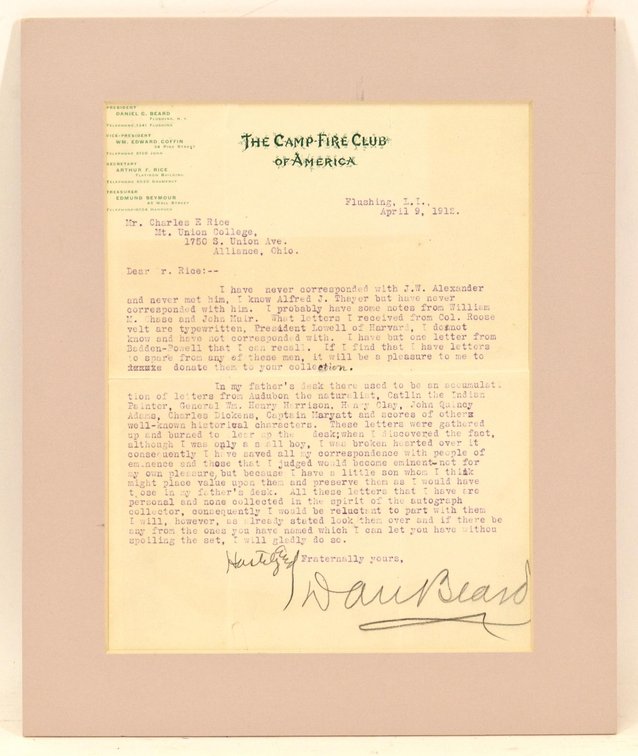 PRESIDENT
DANIEL C. BEARD
FLUSHING, N. Y.
TELEPHONE 1241 FLUSHING
VICE-PRESIDENT
WM. EDWARD COFFIN
34 PINE STREET
TELEPHONE JOHN
SECRETARY
ARTHUR F. RICE
FLATIRON BUILDING
TELEPHONE GRAMERCY
TREASURER
EDMUND SEYMOUR
45 WALL STREET
TELEPHONE HANOVER
THE CAMP-FIRE CLUB
OF AMERICA
Flushing, L.I.,
April 9, 1912.
Mr. Charles E Rice
Mt. Union College,
1750 S. Union Ave.
Alliance, Ohio.
Dear r. Rice:--
I have never corresponded with J.W. Alexander
and never met him, I know Alfred J. Thayer but have never
corresponded with him. I probably have some notes from William
M. Chase and John Muir. What letters I received from Col. Roose
velt are typewritten, President Lowell of Harvard, I do not
know and have not corresponded with. I have but one letter from
Badden-Powell that I can recall. If I find that I have letters
to spare from any of these men, it will be a pleasure to me to
donate them to your collection.
In my father's desk there used to be an accumulati
tion of letters from Audubon the naturalist, Catlin the Indian
Painter, General Wm. Henry Harrison, Henry Clay, John Quincy
Adams, Charles Dickens, Captain Maryatt and scores of others
well-known historical characters. These letters were gathered
up and burned to lear up the desk;when I discovered the fact,
although I was only a small boy, I was broken hearted over it
consequently I have saved all my correspondence with people of
eminence and those that I judged would become eminent-not for
my own pleasure, but because I have a little son whom I think
might place value upon them and preserve them as I would have
t ose in my father's desk. All these letters that I have are
personal and none collected in the spirit of the autograph
collector, consequently I would be reluctant to part with them
I will, however, as already stated look them over and if there be
any from the ones you have named which I can let you have withou
spoiling the set, I will gladly do so.
Fraternally yours,
Dan Beard